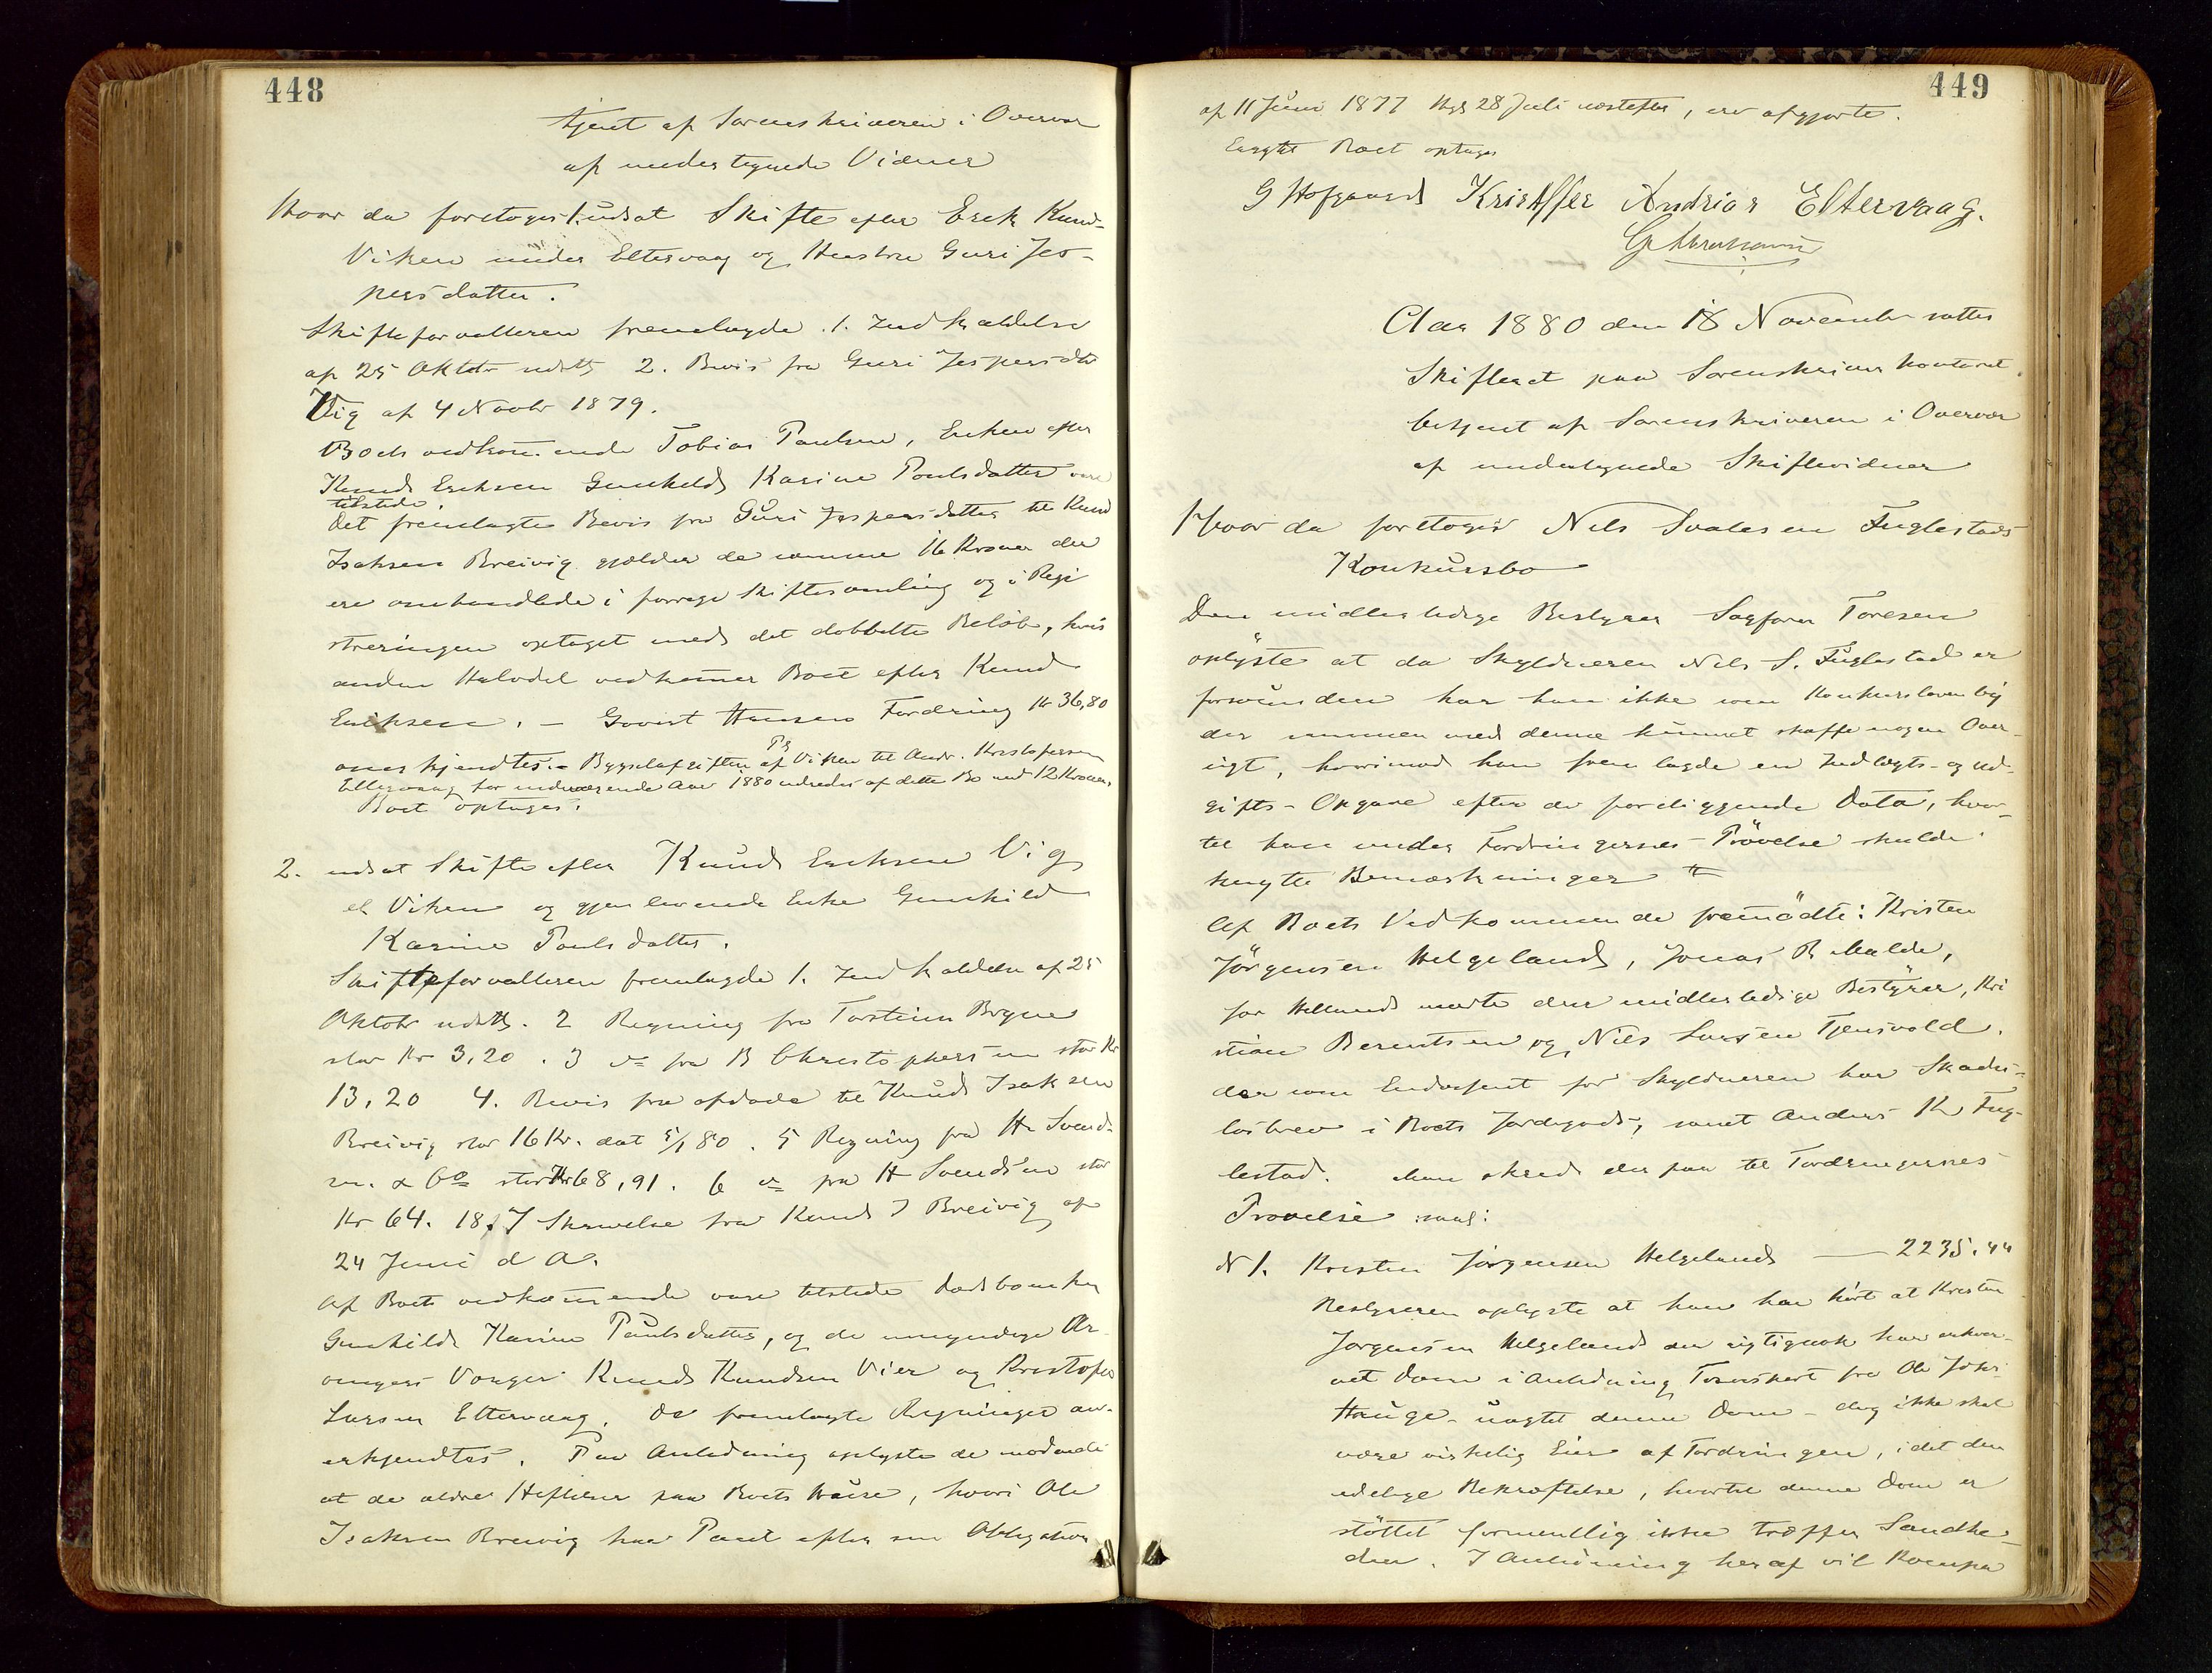 448
tjent af Sorenskriveren i Overvær
af undertegnede Vidner
Hvor da foretoges 1. udsat Skifte efter Erik Knud-
Viken under Eltervaag og Hustru Guri Jes-
persdatter.
Skifteforvalteren fremlagde 1. Indkaldelse
af 25 Oktbr udstdt 2. Bevis fra Guri Jespersdtr
Vig af 4 Novbr 1879.
Boets vedkommende Tobias Paulsen, Enken efter
Knud Eriksen Gunhild Karine Poulsdatter vare
tilstede.
Det fremlagte Bevis fra Guri Jespersdatter til Knud
Isaksen Breivig gjælder de samme 16 Kroner der
ere omhandlede i forrige Skiftesamling og i Regi
streringen optaget med det dobbelte Beløb, hvis
anden Halvdel vedkommer Boet efter Knud
Eriksen. – Govert Hansens Fordring Kr 36,80
anerkjendtes. – Bygselafgiften af Pl Viken til Andr. Kristofersen
Eltervaag for indeværende Aar 1880 udredes af dette Bo med 12 Kroner.
Boet optages.
2. udsat Skifte efter Knud Eriksen Vig
el Viken og gjenlevende Enke Gunhild
Karine Poulsdatter.
Skifteforvalteren fremlagde 1. Indkaldelse af 25
Oktobr udstdt. 2 Regning fra Torstein Bryne
stor Kr 3,20 . 3 do fra B Christophersen stor Kr
13,20 4. Bevis fra afdøde til Knud Isaksen
Breivig stor 16 Kr. dat 5/1 80 . 5 Regning fra H. Svend-
sen & Co stor Kr 68,91 . 6 do fra H Svendsen stor
Kr 64.18. 7 Skrivelse fra Knud I Breivig af
24 Juni d A.
Af Boets vedkommende vare tilstede
Gunhild Karine Paulsdatter, og de umyndige Ar-
vingers Værger Knud Knudsen Vier og Kristofer
Larsen Eltervaag. De fremlagte Regninger an-
erkjendtes. Paa Anledning oplyste de mødende
at de ældre Heftelser paa Boets Huse, hvori Ole
Isaksen Breivig har Pant efter sin Obligation
449
af 11 Juni 1877 tlgl 28 Juli næstefter, ere afgjorte.
Boet optages
G Hofgaard Kristoffer Andrias Eltervaag.
G Abrahamsen
Aar 1880 den 18 November sattes
Skifteret paa Sorenskriver kontoret
betjent af Sorenskriveren i Overvær
af undertegnede Skiftevidner
Hvor da foretoges Nils Svalesen Fuglestads
Konkursbo
Den midlertidige Bestyrer Sagfører Toresen
oplyste at da Skyldneren Nils S. Fuglestad er
forsvunden har han ikke som Konkursloven byder
der sammen med denne kunnet skaffe nogen Over-
sigt, hvorimod han fremlagde en Indtægts- og Ud-
gifts-Opgave efter de foreliggende Data, hvor-
til han under Fordringernes Prøvelse skulde
knytte Bemærkninger
Af Boets Vedkommende fremmødte: Kristen
Jørgensen Helgeland, Jonas R Malde,
for Helland mødte den midlertidige Bestyrer, Kri
stian Berentsen og Nils Larsen Tjensvold.
der som Endossent for Skyldneren har Skades-
løsbrev i Boets Jordegods, samt Anders K Fug-
lestad. Man skred derpaa til Fordringernes
Prøvelse saal:
N 1. Kristen Jørgensen Helgeland — 2235.44
Bestyreren oplyste at han har hørt at Kristen
Jørgensen Helgeland der rigtignok har erhver-
vet Dom i Anledning fra Ole Johs
Hauge – uagtet denne Dom – dog ikke skal
være virkelig Eier af Fordringen, idet den
edelige Bekræftelse, hvortil denne Dom er
støttet formentlig ikke træffer Sandhe-
den. I Anledning heraf vil